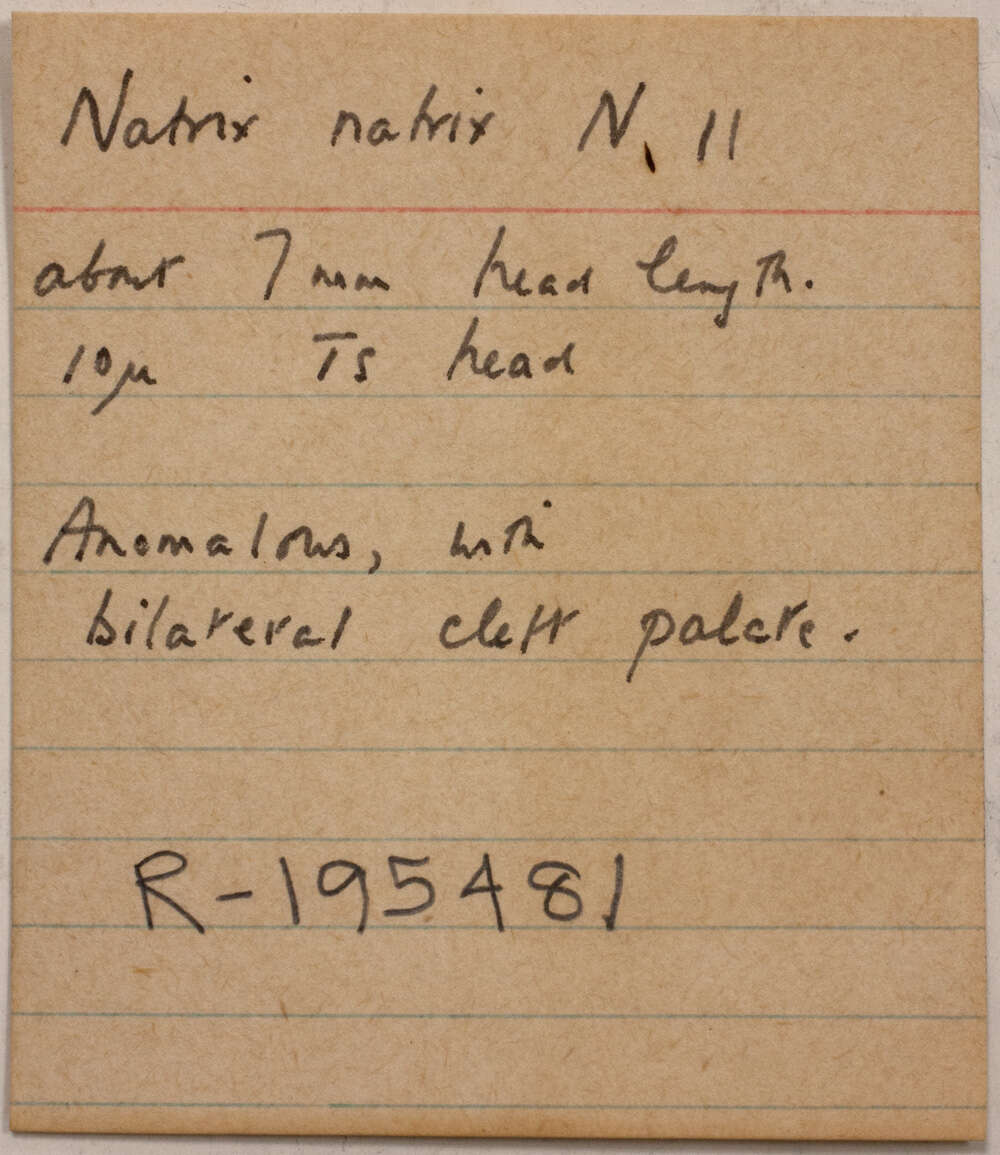 Natrix natrix N. 11
about 7 mm head length.
10µ TS head
Anomalous, with
bilateral cleft palate.
R-195481